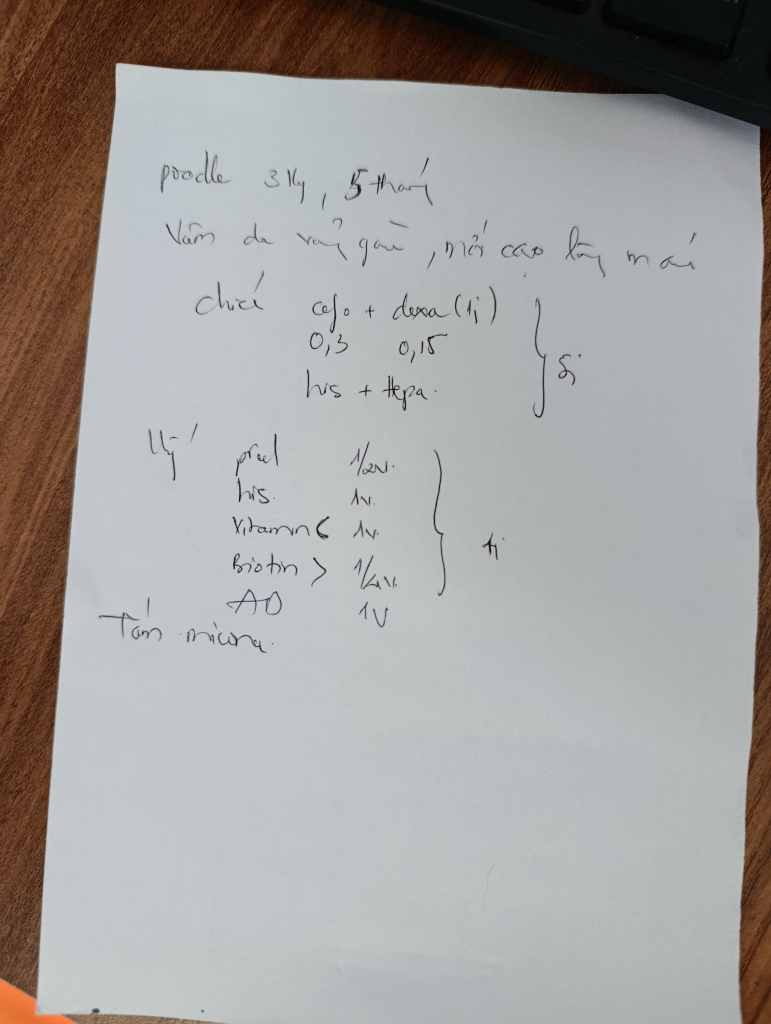 poodle 3kg, 5 tháng
Viêm da vảy gàu, mới cạo lông máu
chích cefo + dexa (1j)
0,3 0,15
his + Hepa.
pred 1/2v.
his. 1v.
Vitamin C 1v.
Biotin > 1/4v.
AD 1V
Tắm micona.